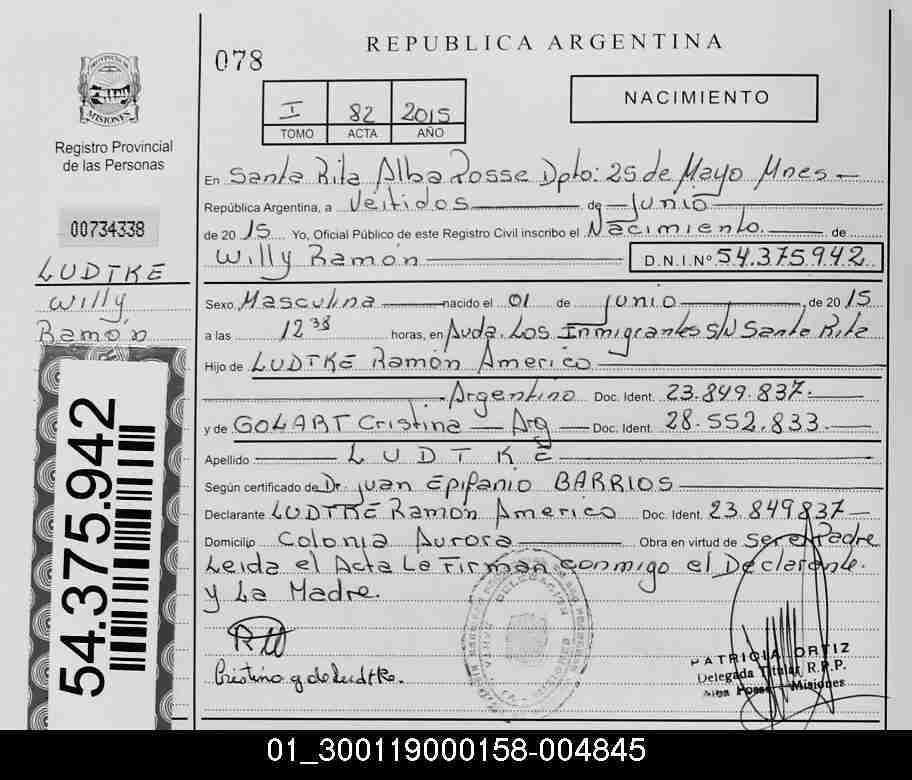 078
REPUBLICA ARGENTINA
PROVINCIA DE
MISIONES
Registro Provincial
de las Personas
00734338
LUDTKE
Willy
Ramón
54.375.942
I 82 2015
TOMO ACTA AÑO
NACIMIENTO
En Santa Rita Alba Posse Dpto: 25 de Mayo Mnes
República Argentina, a Veitidos de Junio
de 2015 Yo, Oficial Público de este Registro Civil inscribo el Nacimiento. de
Willy Ramón D.N.I.Nº 54.375.942
Sexo Masculina nacido el 01 de Junio de 2015
a las 12 38 horas, en Avda. Los Inmigrantes S/N Santa Rita
Hijo de LUDTKE Ramón Americo
Argentino Doc. Ident. 23.849.837.
y de GOLART Cristina Arg Doc. Ident. 28.552.833.
Apellido LUDTKE
Según certificado de Dr. Juan Epifanio BARRIOS
Declarante LUDTKE Ramón Americo Doc. Ident. 23.849837
Domicilio Colonia Aurora Obra en virtud de Ser el Padre
Leida el Acta La Firman conmigo el Declarante.
y La Madre.
DELEGACION
PATRICIA ORTIZ
Delegada Titular R.P.P.
Alba Posse - Misiones
01_300119000158-004845